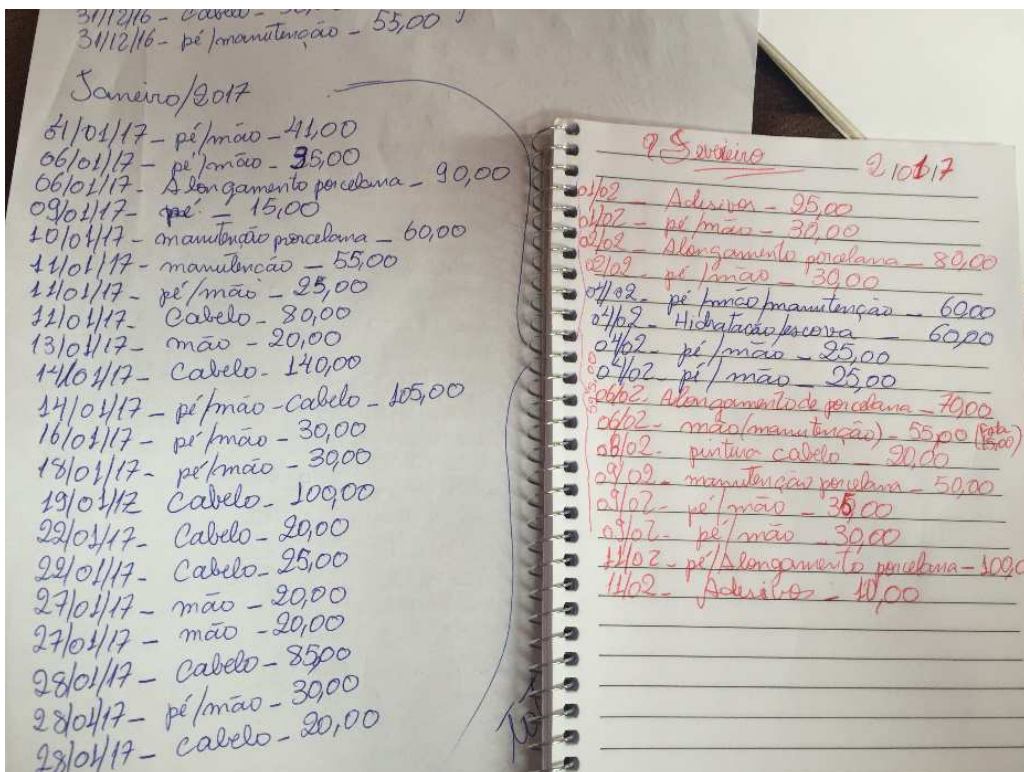 31/12/16 - cabelo -
31/12/16 - pé/manutenção - 55,00
Janeiro/2017
01/17 - pé/mão - 41,00
06/01/17 - pé/mão - 35,00
06/01/17 - Alongamento porcelana - 90,00
09/01/17 - pé - 15,00
10/01/17 - manutenção porcelana - 60,00
11/01/17 - manutencão - 55,00
11/01/17 - pé/mão - 25,00
11/01/17 - Cabelo - 80,00
13/01/17 - mão - 20,00
14/01/17 - Cabelo - 140,00
14/01/17 - pé/mão - Cabelo - 105,00
16/01/17 - pé/mão - 30,00
18/01/17 - pé/mão - 30,00
19/01/17 Cabelo - 100,00
22/01/17 - Cabelo - 20,00
22/01/17 - Cabelo - 25,00
27/01/17 - mão - 20,00
27/01/17 - mão - 20,00
28/01/17 - Cabelo - 85,00
28/01/17 - pé/mão - 30,00
28/01/17 - cabelo - 20,00
Fevereiro 2017
01/02 - Adesivos - 25,00
01/02 - pé/mão - 30,00
02/02 - Alongamento porcelana - 80,00
02/02 - pé/mão - 30,00
04/02 - pé/mão/manutenção - 60,00
04/02 - Hidratação/escova - 60,00
04/02 - pé/mão - 25,00
04/02 - pé/mão - 25,00
06/02 - Alongamento de porcelana - 70,00
06/02 - mão (manutenção) - 55,00
08/02 - pintura cabelo - 20,00
09/02 - manutenção porcelana - 50,00
09/02 - pé/mão - 35,00
09/02 - pé/mão - 30,00
11/02 - pé/Alongamento porcelana - 100,0
11/02 - Adesivos - 10,00